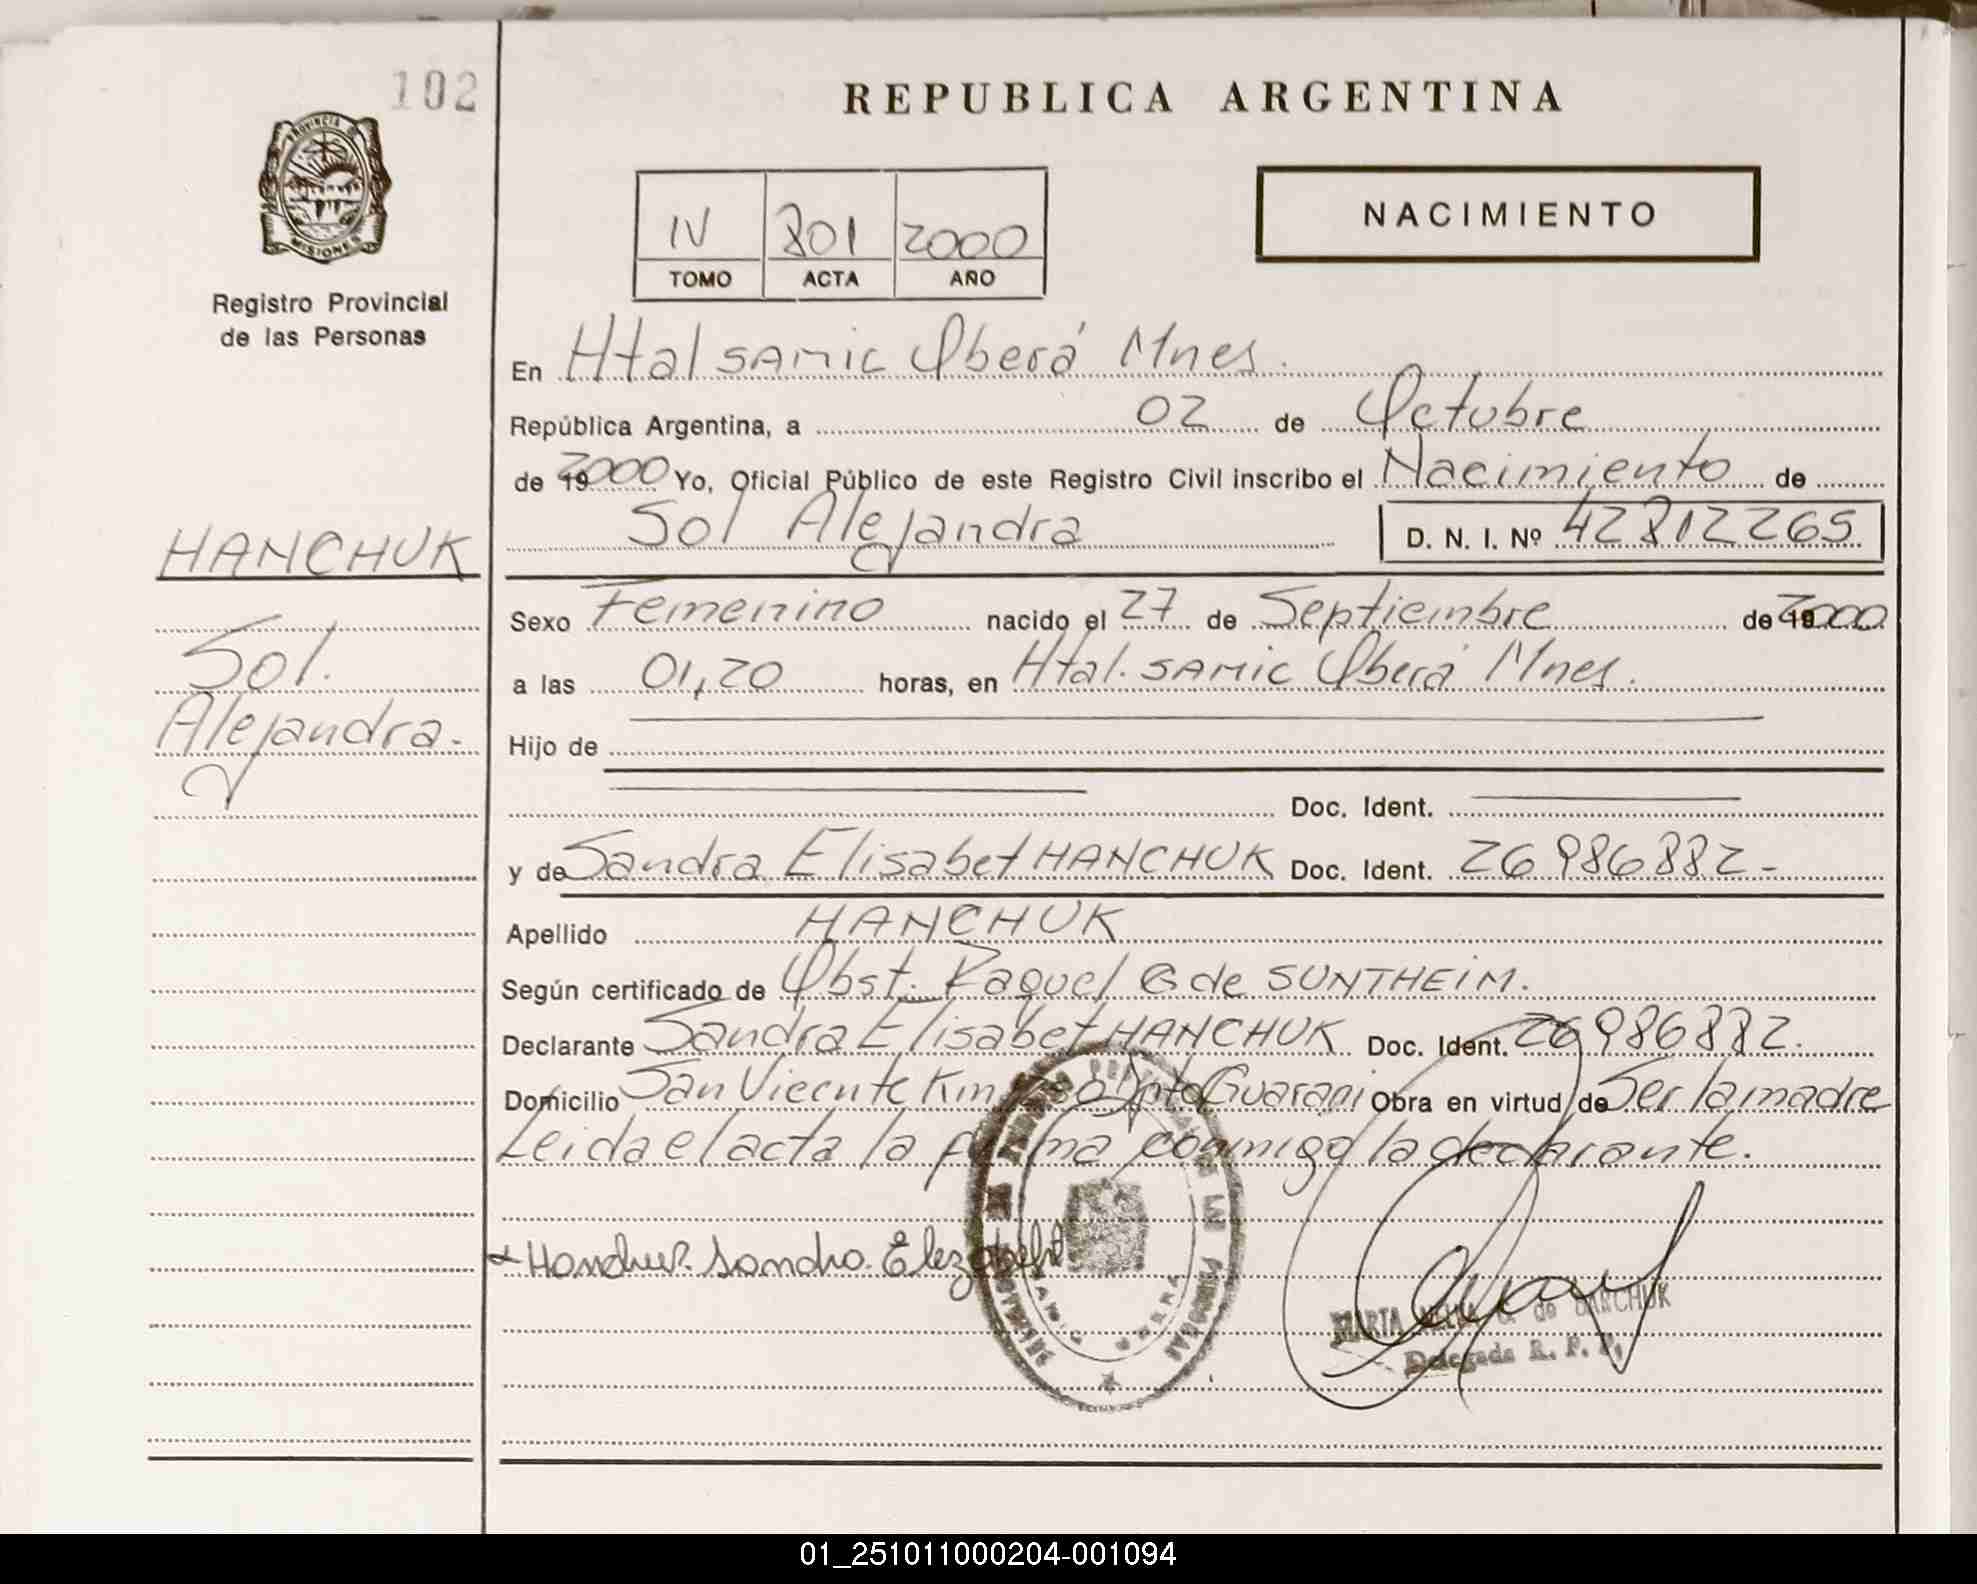 102
REPUBLICA ARGENTINA
PROVINCIA DE
MISIONES
Registro Provincial
de las Personas
IV 801 2000
TOMO ACTA AÑO
NACIMIENTO
En Htal SAMIC Oberá Mnes.
República Argentina, a 02 de Octubre
de 19 2000 Yo, Oficial Público de este Registro Civil inscribo el Nacimiento de
Sol Alejandra D. N. I. Nº 42812265
HANCHUK
Sol.
Alejandra.-
Sexo Femenino nacido el 27 de Septiembre de 19 2000
a las 01,20 horas, en Htal. SAMIC Oberá Mnes.
Hijo de
Doc. Ident.
y de Sandra Elisabet HANCHUK Doc. Ident. 26986882-
Apellido HANCHUK
Según certificado de Obst. Raquel G de SUNTHEIM.
Declarante Sandra Elisabet HANCHUK Doc. Ident. 26986882.
Domicilio San Vicente Km Dpto Guarani Obra en virtud de Ser la madre
Leida el acta la firma conmigo la declarante.
Hanchuk Sandra Elezabeht
MARTA de HANCHUK
Delegada R. P. P.
01_251011000204-001094